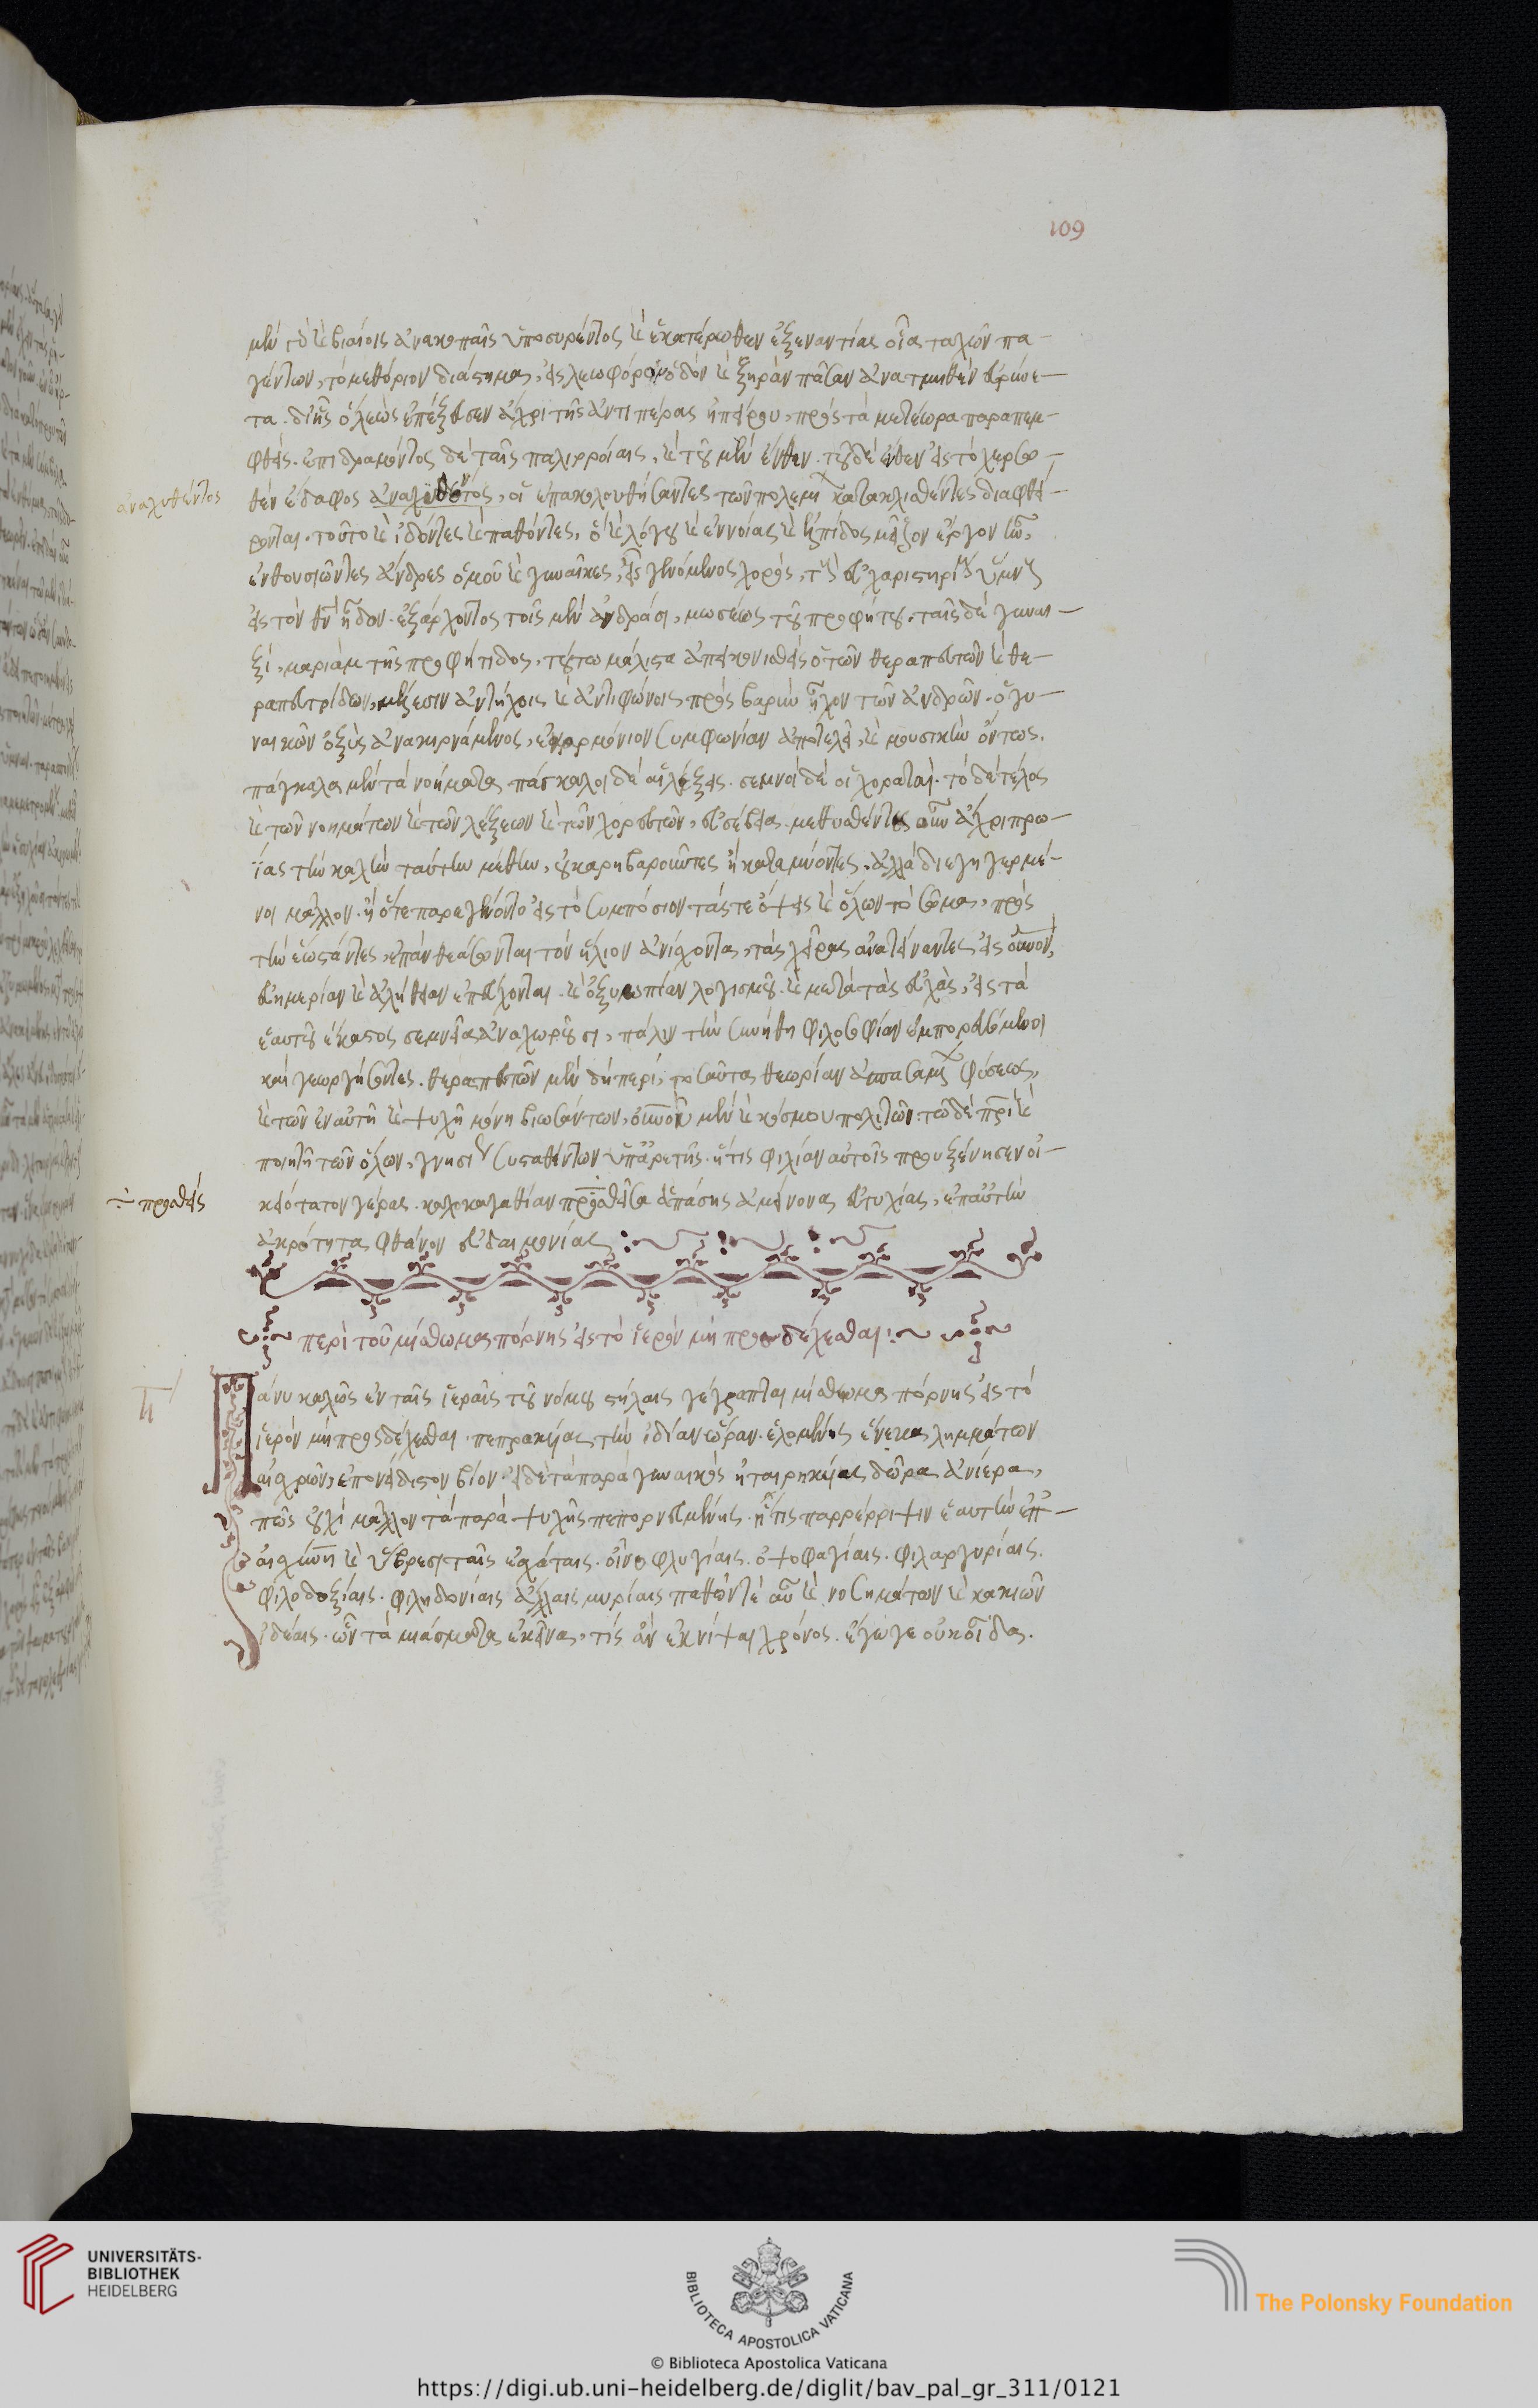 109
μὲν τὸ καὶ βιαίοις ἀνακοπαῖς ὑποσυρέντος καὶ ἑκατέρωθεν ἐξ ἐναντίας οἷα τειχῶν πα-
γέντων, τὸ μεθόριον διάστημα, εἰς λεωφόρον ὁδὸν καὶ ξηρὰν πᾶσαν ἀνατμηθὲν εὐρύνε-
ται. δι' ἧς ὁ λεὼς ἐπέζευσεν ἄχρι τῆς ἀντιπέρας ἠπείρου, πρὸς τὰ μετέωρα παραπεμ-
φθείς. ἐπιδραμόντος δὲ ταῖς παλιρροίαις, καὶ τοῦ μὲν ἔνθεν. τοῦ δὲ ἔνθεν εἰς τὸ χερσω-
ἀναλυθέντος
θὲν ἔδαφος ἀναχυθέντος, οἱ ἐπακολουθήσαντες τῶν πολεμίων κατακλυσθέντες διαφθεί-
ρονται. τοῦτο καὶ ἰδόντες καὶ παθόντες, ὃ καὶ λόγου καὶ ἐννοίας καὶ ἐλπίδος μεῖζον ἔργον ἦν,
ἐνθουσιῶντες ἄνδρες ὁμοῦ καὶ γυναῖκες, εἷς γενόμενος χορός, τοὺς εὐχαριστηρίους ὕμνους
εἰς τὸν θν ᾖδον. ἐξάρχοντος τοῖς μὲν ἀνδράσι, μωσέως τοῦ προφήτου. ταῖς δὲ γυναι-
ξί, μαριὰμ τῆς προφήτιδος, τούτω μάλιστα ἀπεικονισθεὶς ὁ τῶν θεραπευτῶν καὶ θε-
ραπευτρίδων, μέλεσιν ἀντήχοις καὶ ἀντιφώνοις, πρὸς βαρὺν ἦχον τῶν ἀνδρῶν. ὁ γυ-
ναικῶν ὀξὺς ἀνακιρνάμενος, ἐναρμόνιον συμφωνίαν ἀποτελεῖ, καὶ μουσικὴν ὄντως.
πάγκαλα μὲν τὰ νοήματα πάγκαλοι δὲ αἱ λέξεις. σεμνοὶ δὲ οἱ χορευταί. τὸ δὲ τέλος
καὶ τῶν νοημάτων καὶ τῶν λέξεων καὶ τῶν χορευτῶν, εὐσέβεια. μεθυσθέντες οὖν ἄχρι πρω-
ΐας τὴν καλὴν ταύτην μέθην, οὐ καρηβαροῦντες ἢ καταμύοντες, ἀλλὰ διεγηγερμέ-
νοι μᾶλλον. ἢ ὅτε παρεγένοντο εἰς τὸ συμπόσιον τάς τε ὄψεις καὶ ὅλον τὸ σῶμα, πρὸς
τὴν ἕω στάντες, ἐπὰν θεάσωνται τὸν ἥλιον ἀνίσχοντα, τὰς χεῖρας ἀνατείναντες εἰς οὐνον,
εὐημερίαν καὶ ἀλήθειαν ἐπεύχονται. καὶ ὀξυωπίαν λογισμοῦ. καὶ μετὰ τὰς εὐχὰς, εἰς τὰ
ἑαυτοῦ ἕκαστος σεμνεῖα ἀναχωροῦσι, πάλιν τὴν συνήθη φιλοσοφίαν ἐμπορευσόμενοι
καὶ γεωργήσοντες. θεραπευτῶν μὲν δὴ πέρι, τοσαῦτα θεωρίαν ἀσπασαμένων φύσεως,
καὶ τῶν ἐν αὐτῇ καὶ ψυχῇ μόνη βιωσάντων, οὐνοῦ μὲν καὶ κόσμου πολιτῶν. τῶ δὲ πρι καὶ
ποιητῇ τῶν ὅλων, γνησίως συσταθέντων ὑπ' ἀρετῆς. ἥτις φιλίαν αὐτοῖς προυξένησεν οἰ-
προσθεὶς
κειότατον γέρας. καλοκαγαθίαν προσθεῖσα ἁπάσης ἀμείνονα εὐτυχίας, ἐπ' αὐτὴν
ἀκρότητα φθάνον εὐδαιμονίας
περὶ τοῦ μίσθωμα πόρνης εἰς τὸ ἱερὸν μὴ προσδέχεσθαι
π
Πάνυ καλῶς ἐν ταῖς ἱεραῖς τοῦ νόμου στήλαις γέγραπται μίσθωμα πόρνης εἰς τὸ
ἱερὸν μὴ προσδέχεσθαι. πεπρακυίας τὴν ἰδίαν ὥραν. ἑλομένης ἕνεκα λημμάτων
αἰσχρῶν, ἐπονείδιστον βίον. εἰ δὲ τὰ παρὰ γυναικὸς ἡταιρηκυίας δῶρα ἀνίερα,
πῶς οὐχὶ μᾶλλον τὰ παρὰ ψυχῆς πεπορνευμένης. ἥτις παρρέρριψεν ἑαυτὴν ἐπ'-
αἰσχύνη καὶ ὕβρεσι ταῖς ἐσχάταις. οἰνοφλυγίαις. ὀψοφαγίαις. φιλαργυρίαις.
φιλοδοξίαις. φιληδονίαις ἄλλαις μυρίαις παθῶν τὲ αὖ καὶ νοσημάτων καὶ κακιῶν
ἰδέαις. ὧν τὰ μιάσματα ἐκεῖνα, τίς ἂν ἐκνίψαι χρόνος. ἔγωγε οὐκ οἶδα.
UNIVERSITÄTS-
BIBLIOTHEK
HEIDELBERG
BIBLIOTECA APOSTOLICA VATICANA
The Polonsky Foundation
© Biblioteca Apostolica Vaticana
https://digi.ub.uni-heidelberg.de/diglit/bav_pal_gr_311/0121